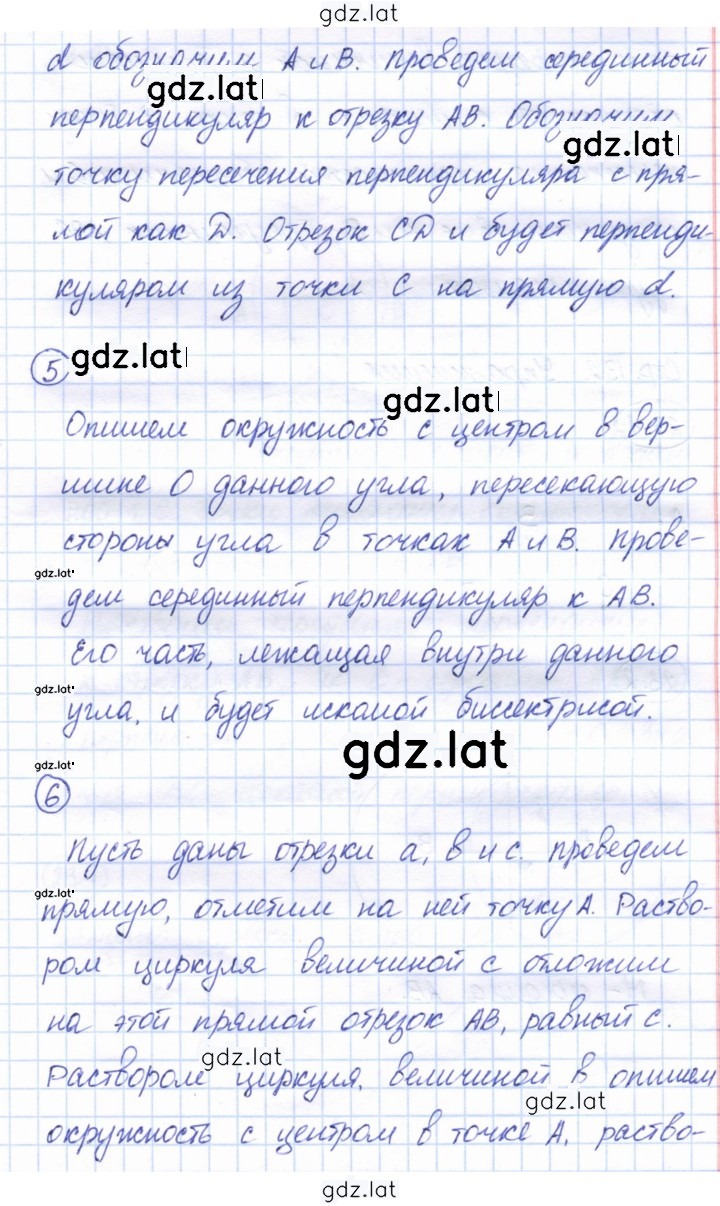 gdz.lat
d обозначим А и В. Проведем серединный
gdz.lat
перпендикуляр к отрезку АВ. Обозначим
gdz.lat
точку пересечения перпендикуляра с пря-
мой как D. Отрезок CD и будет перпенди-
куляром из точки С на прямую d.
5 gdz.lat
gdz.lat
Опишем окружность с центром в вер-
шине О данного угла, пересекающую
стороны угла в точках А и В. Прове-
gdz.lat
дем серединный перпендикуляр к АВ.
Его часть, лежащая внутри данного
gdz.lat
угла, и будет искомой биссектрисой.
gdz.lat
gdz.lat
6
Пусть даны отрезки а, в и с. Проведем
gdz.lat
прямую, отметим на ней точку А. Раство-
ром циркуля величиной с отложим
на этой прямой отрезок АВ, равный с.
gdz.lat
Раствором циркуля, величиной в опишем
gdz.lat
окружность с центром в точке А, раство-
gdz.lat